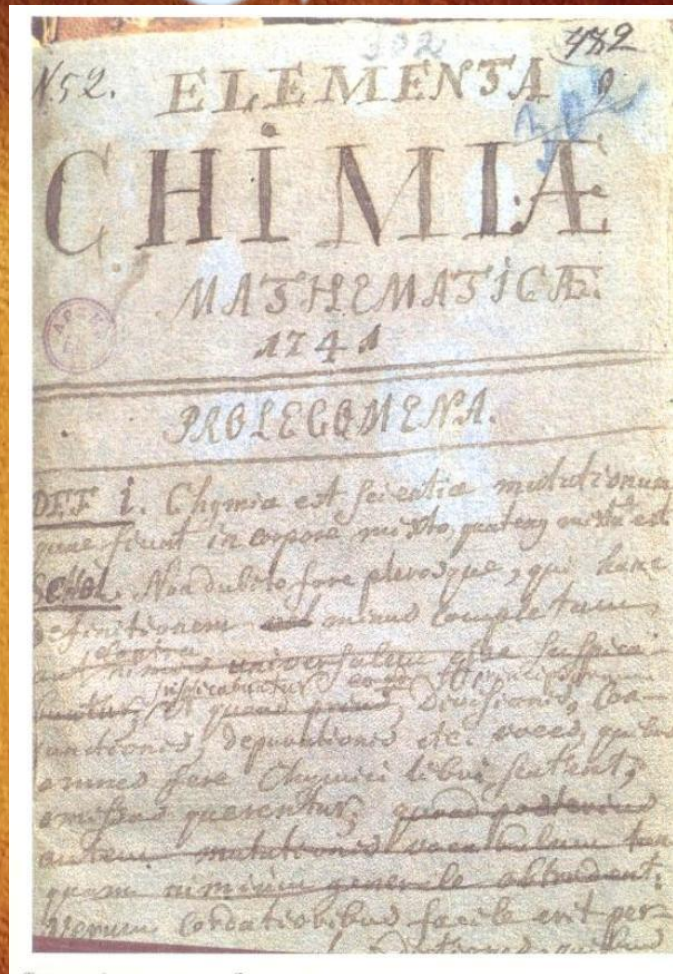 302 482
N.52. ELEMENTA 9
CHIMIÆ
MATHEMATICÆ.
1741
PROLEGOMENA.
DEF 1. Chymia est scientia mutationum
quae fiunt in corpore mixto, quatenus mixtum est
Schol. Non dubito fore plerosque, qui hanc
definitionem minus completam
universalem
Divisionis, Con-
junctionis, depurationis etc. voces, quibus
omnes fere Chymici libri scatent,
omissas querentur; quod posterius
autem mutationis vocabulum tan
quam nimium generale obtrudent:
Verum Cordatioribus facile erit per-